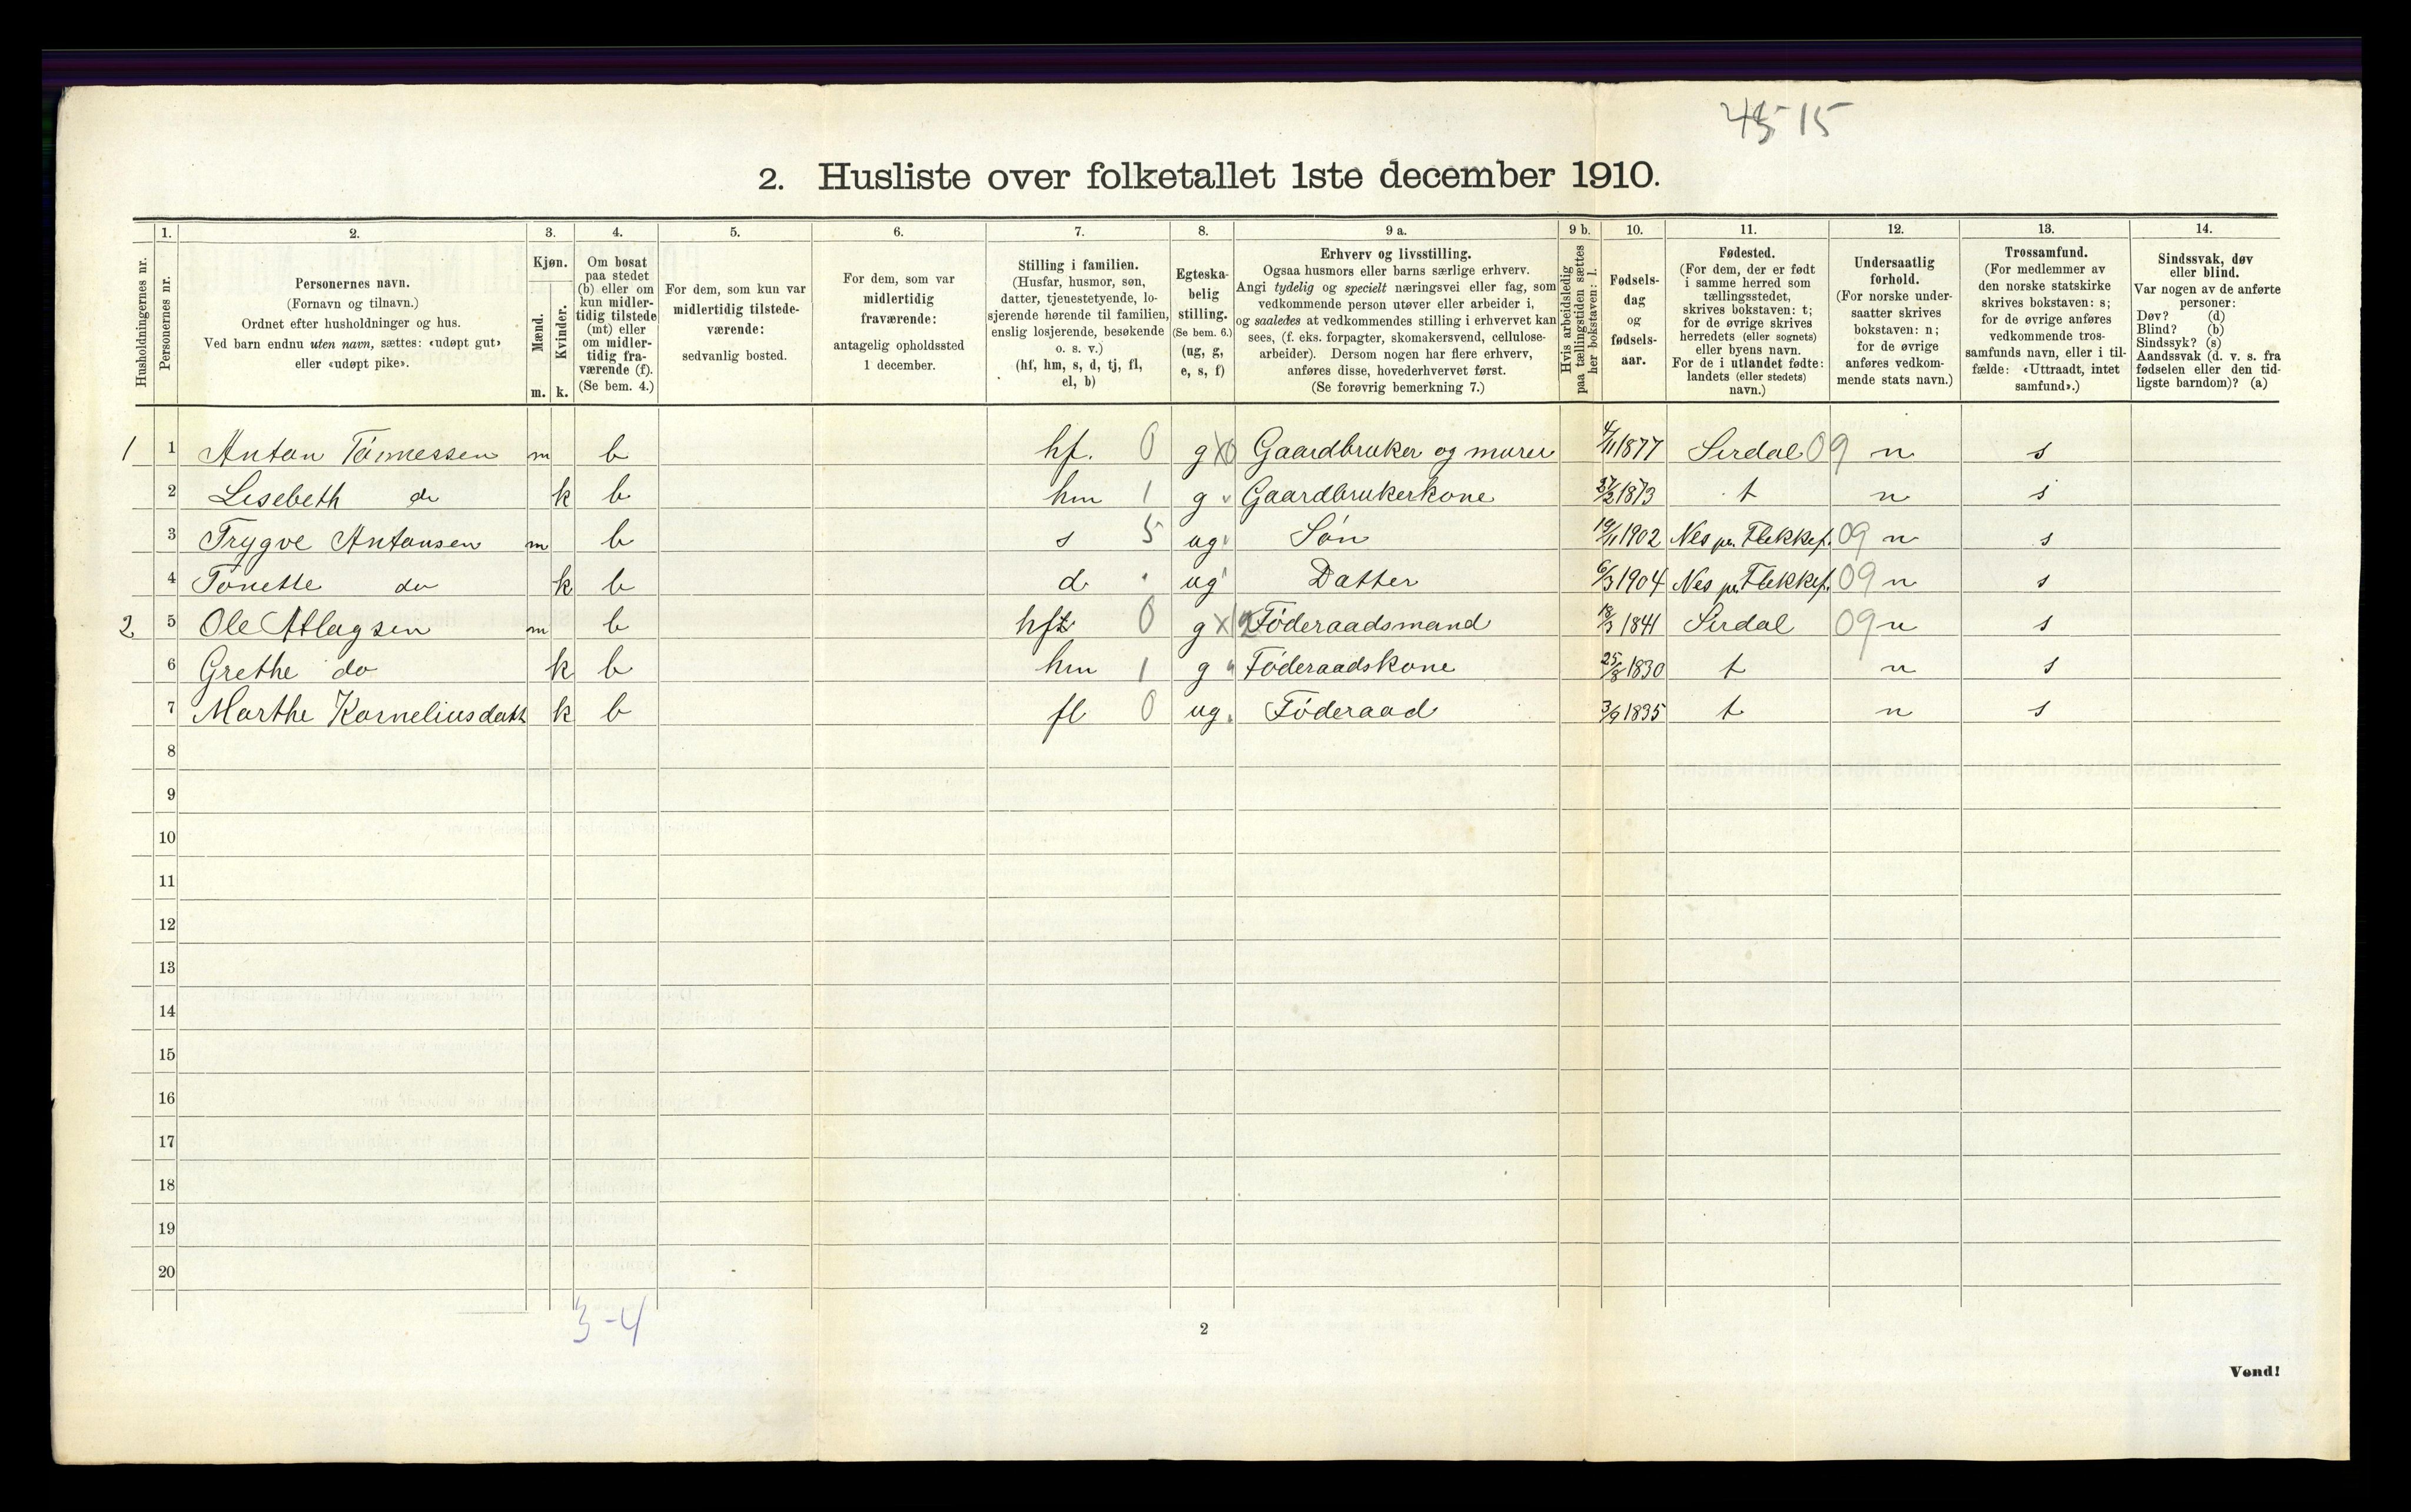 45-15
2. Husliste over folketallet 1ste december 1910.
Husholdningernes nr.
1.
Personernes nr.
2.
Personernes navn.
(Fornavn og tilnavn.)
Ordnet efter husholdninger og hus.
Ved barn endnu uten navn, sættes: «udøpt gut»
eller «udøpt pike».
3.
Kjøn.
Mænd.
Kvinder.
m. k.
4.
Om bosat
paa stedet
(b) eller om
kun midler-
tidig tilstede
(mt) eller
om midler-
tidig fra-
værende (f).
(Se bem. 4.)
5.
For dem, som kun var
midlertidig tilstede-
værende:
sedvanlig bosted.
6.
For dem, som var
midlertidig
fraværende:
antagelig opholdssted
1 december.
7.
Stilling i familien.
(Husfar, husmor, søn,
datter, tjenestetyende, lo-
sjerende hørende til familien,
enslig losjerende, besøkende
o. s. v.)
(hf, hm, s, d, tj, fl,
el, b)
8.
Egteska-
belig
stilling.
(Se bem. 6.)
(ug, g,
e, s, f)
9 a.
Erhverv og livsstilling.
Ogsaa husmors eller barns særlige erhverv.
Angi tydelig og specielt næringsvei eller fag, som
vedkommende person utøver eller arbeider i,
og saaledes at vedkommendes stilling i erhvervet kan
sees, (f. eks. forpagter, skomakersvend, cellulose-
arbeider). Dersom nogen har flere erhverv,
anføres disse, hovederhvervet først.
(Se forøvrig bemerkning 7.)
9 b.
Hvis arbeidsledig
paa tællingstiden sættes
her bokstaven: l.
10.
Fødsels-
dag
og
fødsels-
aar.
11.
Fødested.
(For dem, der er født
i samme herred som
tællingsstedet,
skrives bokstaven: t;
for de øvrige skrives
herredets (eller sognets)
eller byens navn.
For de i utlandet fødte:
landets (eller stedets)
navn.)
12.
Undersaatlig
forhold.
(For norske under-
saatter skrives
bokstaven: n;
for de øvrige
anføres vedkom-
mende stats navn.)
13.
Trossamfund.
(For medlemmer av
den norske statskirke
skrives bokstaven: s;
for de øvrige anføres
vedkommende tros-
samfunds navn, eller i til-
fælde: «Uttraadt, intet
samfund».)
14.
Sindssvak, døv
eller blind.
Var nogen av de anførte
personer:
Døv? (d)
Blind? (b)
Sindssyk? (s)
Aandssvak (d. v. s. fra
fødselen eller den tid-
ligste barndom)? (a)
1 1 Anton Tønnessen m b hf. 0 g X0 Gaardbruker og murer 4/11 1877 Sirdal 09 n s
2 Lisebeth do k b hm 1 g Gaardbrukerkone 27/2 1873 t n s
3 Trygve Antonsen m b s 5 ug Søn 19/11 1902 Nes pr. Flekkef. 09 n s
4 Tonette do k b d ug Datter 6/3 1904 Nes pr. Flekkef. 09 n s
2 5 Ole Atlagsen m b hf 0 g X Føderaadsmand 18/3 1841 Sirdal 09 n s
6 Grethe do k b hm 1 g Føderaadskone 25/8 1830 t n s
7 Marthe Korneliusdatt k b fl 0 ug. Føderaad 3/9 1835 t n s
8
9
10
11
12
13
14
15
16
17
18
19
20
3-4
2
Vend!